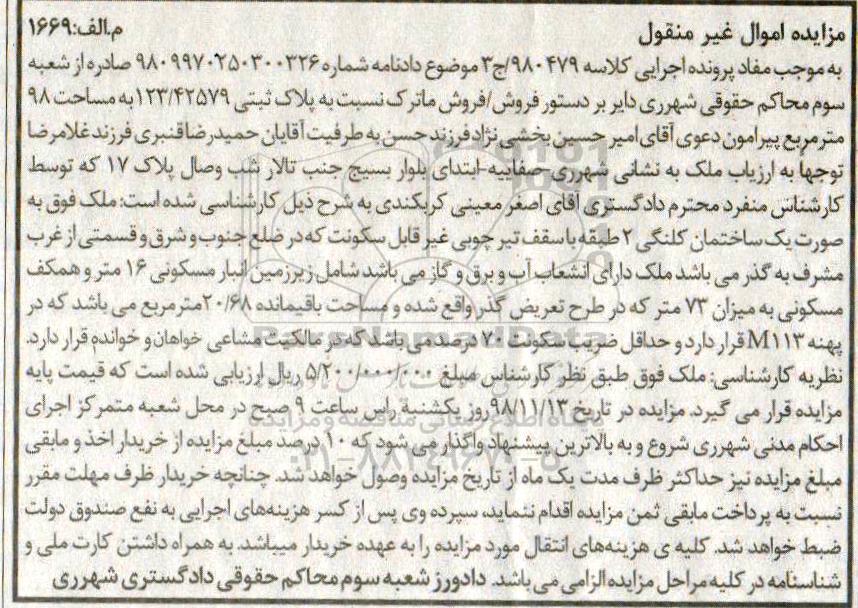 مزایده اموال غیر منقول م.الف:۱۶۶۹
به موجب مفاد پرونده اجرایی کلاسه ۹۸۰۴۷۹/ج۳ موضوع دادنامه شماره ۹۸۰۹۹۷۰۲۵۰۳۰۰۳۲۶ صادره از شعبه
سوم محاکم حقوقی شهرری دایر بر دستور فروش/فروش ماترک نسبت به پلاک ثبتی ۱۲۳/۴۲۵۷۹ به مساحت ۹۸
مترمربع پیرامون دعوی آقای امیر حسین بخشی نژاد فرزند حسن به طرفیت آقایان حمیدرضا قنبری فرزند غلامرضا
توجها به ارزیاب ملک به نشانی شهرری-صفاییه-ابتدای بلوار بسیج جنب تالار شب وصال پلاک ۱۷ که توسط
کارشناس منفرد محترم دادگستری آقای اصغر معینی کریکندی به شرح ذیل کارشناسی شده است: ملک فوق به
صورت یک ساختمان کلنگی ۲ طبقه با سقف تیر چوبی غیر قابل سکونت که در ضلع جنوب و شرق و قسمتی از غرب
مشرف به گذر می باشد ملک دارای انشعاب آب و برق و گاز می باشد شامل زیرزمین انبار مسکونی ۱۶ متر و همکف
مسکونی به میزان ۷۳ متر که در طرح تعریض گذر واقع شده و مساحت باقیمانده ۲۰/۶۸ مترمربع می باشد که در
پهنه M۱۱۳ قرار دارد و حداقل ضریب سکونت ۷۰ درصد می باشد که در مالکیت مشاعی خواهان و خوانده قرار دارد.
نظریه کارشناسی: ملک فوق طبق نظر کارشناس مبلغ ۵/۲۰۰/۰۰۰/۰۰۰ ریال ارزیابی شده است که قیمت پایه
مزایده قرار می گیرد. مزایده در تاریخ ۹۸/۱۱/۱۳ روز یکشنبه راس ساعت ۹ صبح در محل شعبه متمرکز اجرای
احکام مدنی شهرری شروع و به بالاترین پیشنهاد واگذار می شود که ۱۰ درصد مبلغ مزایده از خریدار اخذ و مابقی
مبلغ مزایده نیز حداکثر ظرف مدت یک ماه از تاریخ مزایده وصول خواهد شد. چنانچه خریدار ظرف مهلت مقرر
نسبت به پرداخت مابقی ثمن مزایده اقدام ننماید، سپرده وی پس از کسر هزینه‌های اجرایی به نفع صندوق دولت
ضبط خواهد شد. کلیه ی هزینه‌های انتقال مورد مزایده را به عهده خریدار میباشد. به همراه داشتن کارت ملی و
شناسنامه در کلیه مراحل مزایده الزامی می باشد. دادورز شعبه سوم محاکم حقوقی دادگستری شهرری